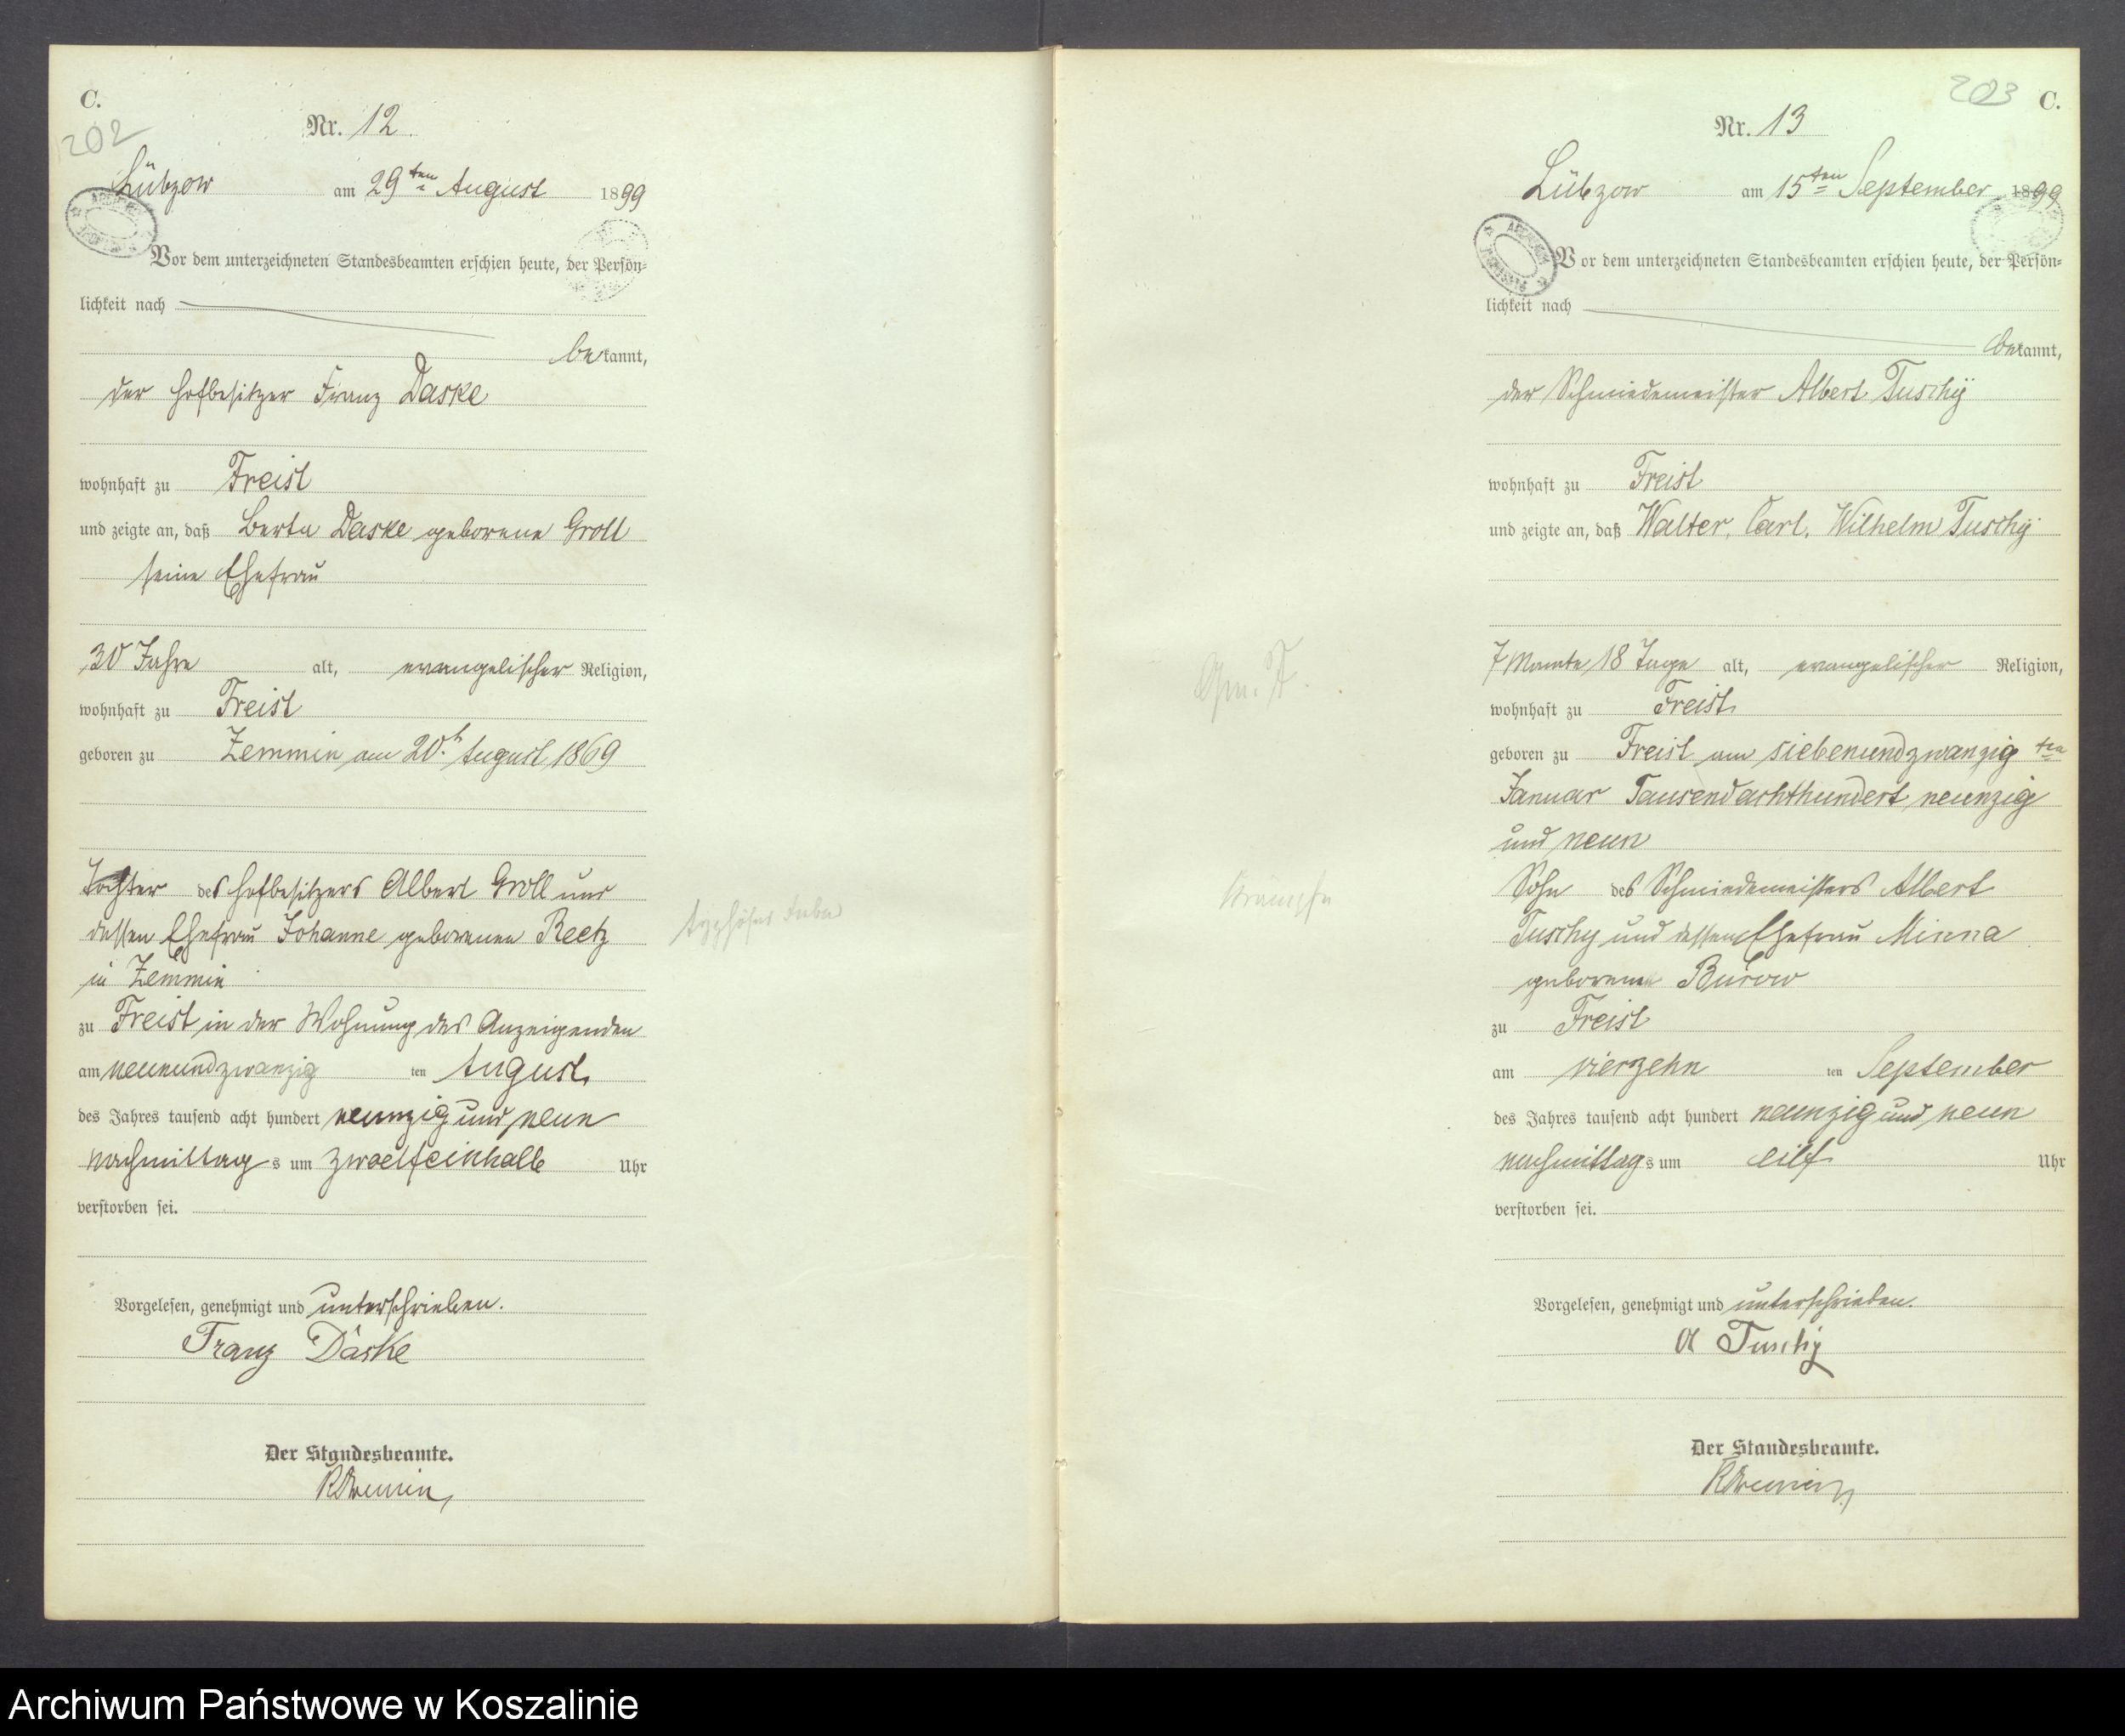 C.
202
Nr. 12
Lübzow am 29ten August 1899
Vor dem unterzeichneten Standesbeamten erschien heute, der Persön=
lichkeit nach
bekannt,
der Hofbesitzer Franz Daske
wohnhaft zu Freist
und zeigte an, daß Berta Daske geborene Groll
seine Ehefrau
30 Jahre alt, evangelischer Religion,
wohnhaft zu Freist
geboren zu Zemmin am 20. August 1869
Tochter des Hofbesitzers Albert Groll und
dessen Ehefrau Johanne geborenen Reetz
in Zemmin
zu Freist in der Wohnung des Anzeigenden
am neunundzwanzig ten August
des Jahres tausend acht hundert neunzig und neun
nachmittags um zwoelfeinhalb Uhr
verstorben sei.
Vorgelesen, genehmigt und unterschrieben.
Franz Däske
Der Standesbeamte.
203
C.
Nr. 13
Lübzow am 15ten September 1899
Vor dem unterzeichneten Standesbeamten erschien heute, der Persön=
lichkeit nach
bekannt,
der Schmiedemeister Albert Tuschÿ
wohnhaft zu Freist
und zeigte an, daß Walter, Carl, Wilhelm Tuschÿ
7 Monate 18 Tage alt, evangelischer Religion,
wohnhaft zu Freist
geboren zu Freist am siebenundzwanzig ten
Januar Tausendachthundert neunzig
und neun
Sohn des Schmiedemeisters Albert
Tuschy und dessen Ehefrau Minna
geborenen Burow
zu Freist
am vierzehn ten September
des Jahres tausend acht hundert neunzig und neun
nachmittags um eilf Uhr
verstorben sei.
Vorgelesen, genehmigt und unterschrieben.
A Tuschÿ
Der Standesbeamte.
Krämpfe
Archiwum Państwowe w Koszalinie